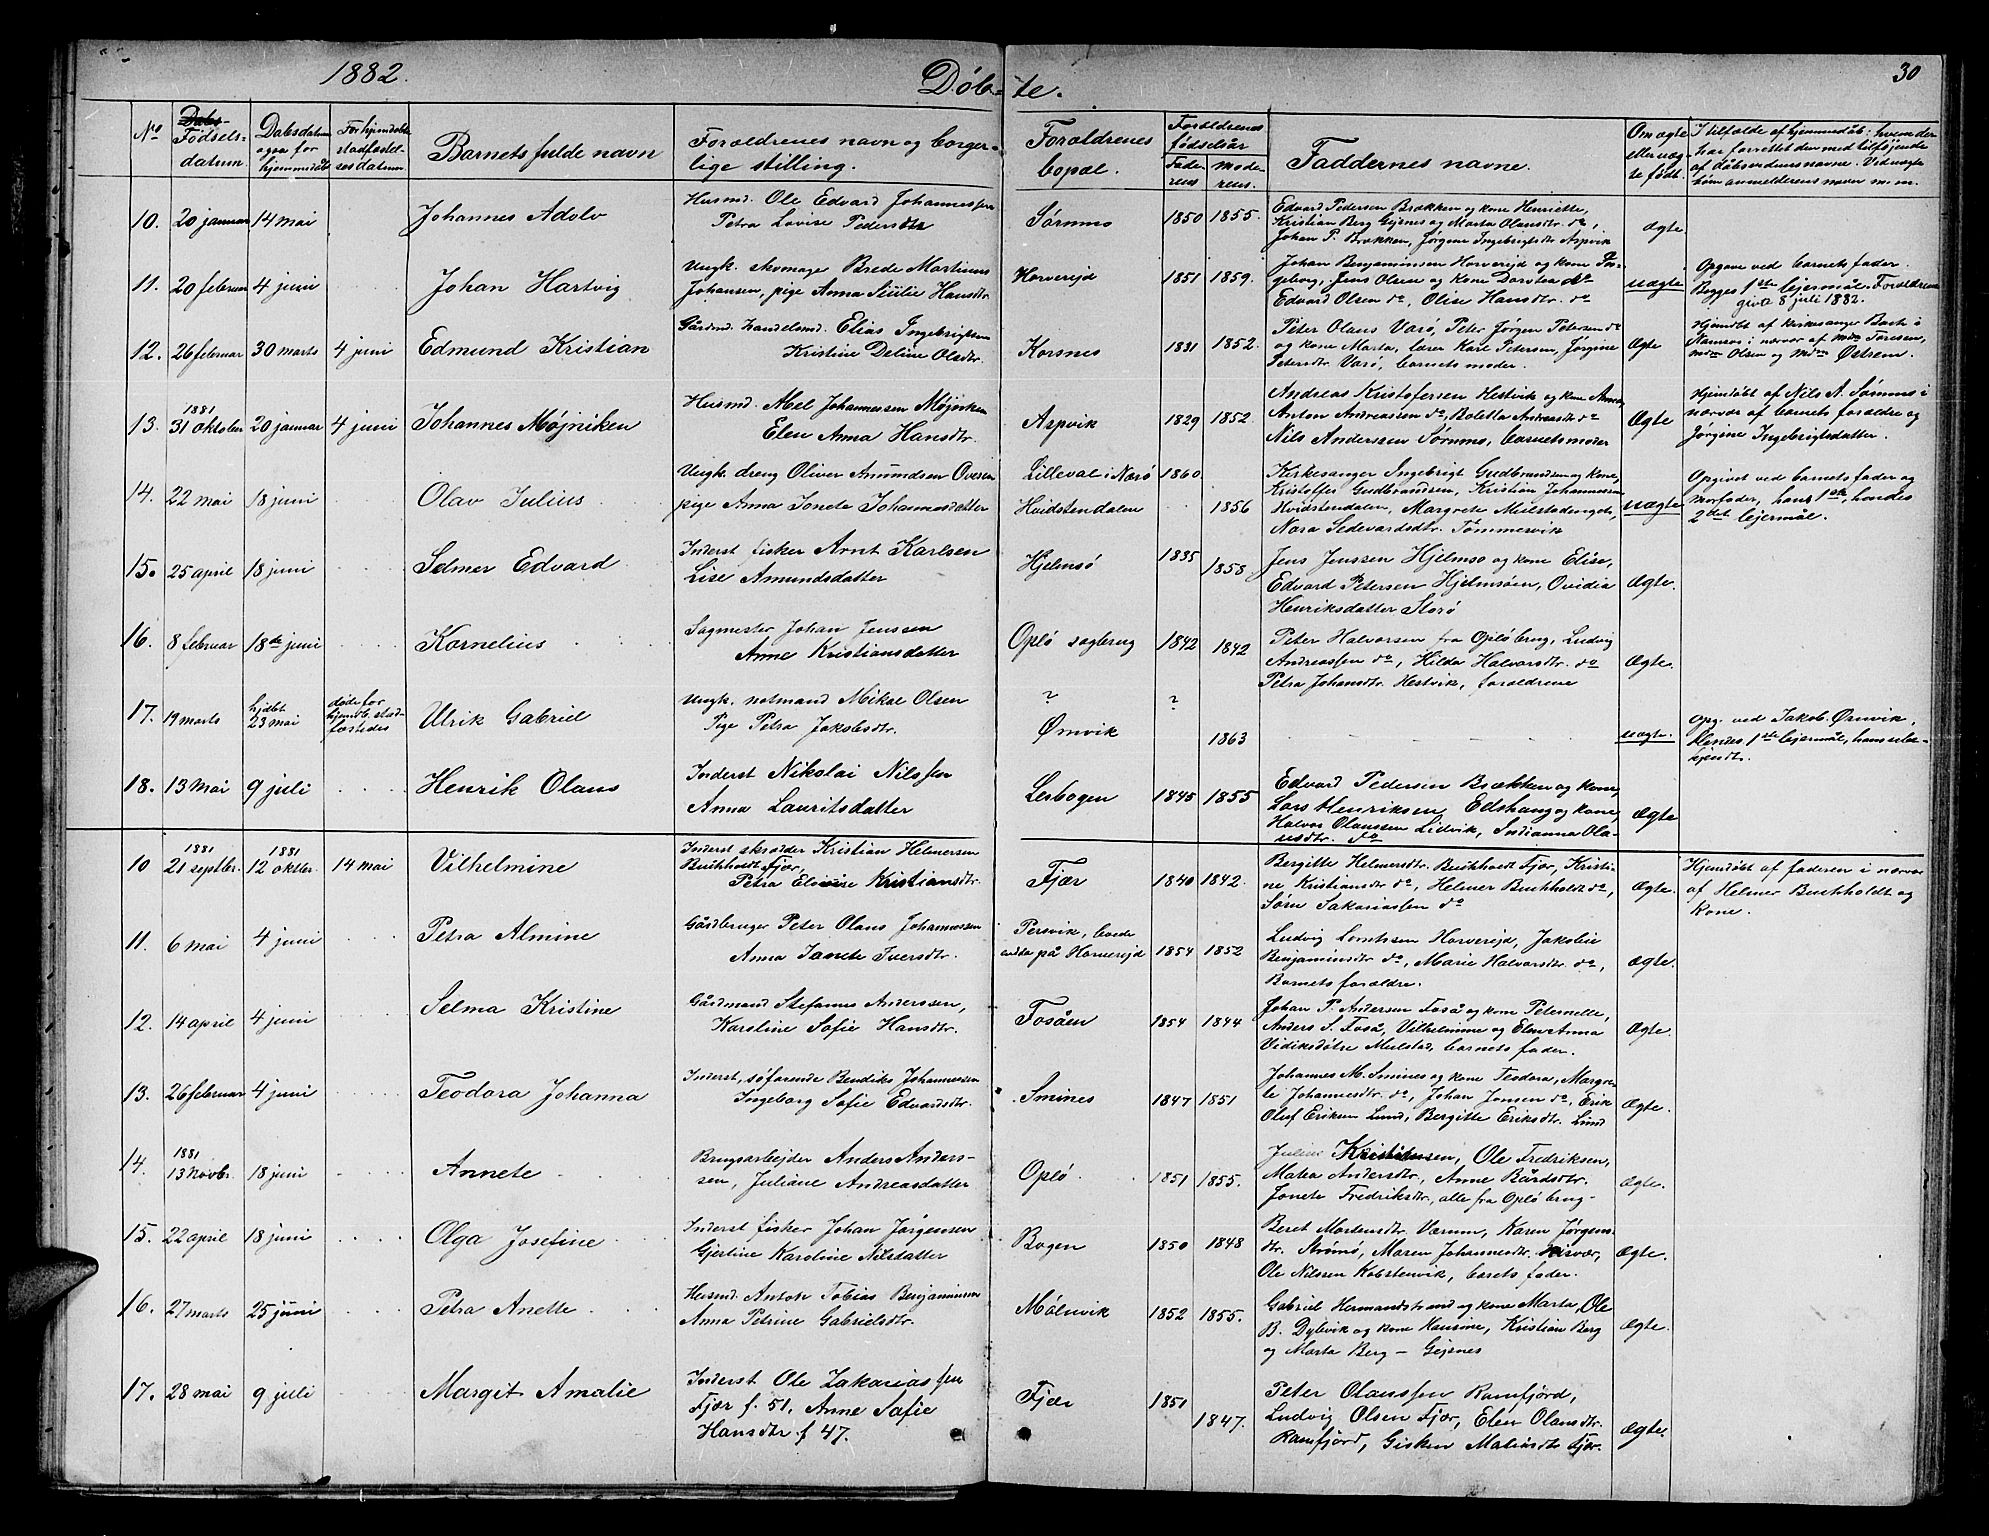 1882.
Døbte.
30
No
Dabs-
Fødsels-
datum.
Dabsdatum
ogsa for
hjemmedåb
For hjemdøbte
stadfæstel-
ses datum.
Barnets fulde navn
Forældrenes navn og borger-
lige stilling.
Forældrenes
bopæl.
Forældrenes
fødselsår
Fade-
rens
mode-
rens.
Faddernes navne.
Om ægte
eller uæg-
te født.
I tilfælde af hjemmedåb: hvem der
har forrettet den med tilføjende
af dåbsvidnernes navne. Vid uægte
børn anmelderens navn m.m.
10. 20 januar 14 mai
Johannes Adolv
Husmd. Ole Edvard Johannessen
Petra Lovise Pedersdtr
Sørmmo 1850 1855.
Edvard Pedersen Brækken og kone Henriette,
Kristian Berg Gejsnes og Marta Olausdtr. do,
Johan P. Brækken, Jørgine Ingebrigtsdtr Aspvik
ægte
11. 20 februar 4 juni
Johan Hartvig
Ungk. skomager Brede Martinus
Johansen, pige Anna Julie Hansdtr.
Horverejd 1851 1859.
Johan Benjaminsen Horverejd og kone In-
geborg, Jens Olsen og kone Dorotea do
Edvard Olsen do, Olise Hansdtr. do
uægte
Opgave ved barnets fader.
Begges 1ste lejermål. Forældrene
givte 8 juli 1882.
12. 26 februar 30 marts 4 juni
Edmund Kristian
Gårdmd. handelsmd. Elias Ingebrigtsen
Kristine Deline Olsdtr.
Korsnes 1831 1852.
Peter Olaus Varø, Peter Jørgen Petersen do
og kone Marta, lærer Kare Petersen, Jørgine
Petersdtr Varø, barnets moder.
Ægte
Hjemdbt af kirkesanger Bach i
Stamsøs i nærvær af mdm Toresen,
mdm Olsen og Mdm Østrem.
13. 1881
31 oktober 20 januar 4 juni
Johannes Møjniken
Husmd. Abel Johannessen Møjniken
Elen Anna Hansdtr.
Aspvik 1829 1852.
Andreas Kristofersen Hestvik og kone Anna,
Anton Andreassen do, Boletta Andreasdtr do
Nils Anderssen Sørmmo, barnets moder
Ægte
Hjemdøbt af Nils A. Sømmo i
nærvær af barnets forældre og
Jørgine Ingebrigtsdatter.
14. 22 mai 18 juni
Olav Julius
Ungk. dreng Oliver Amundsen Oversen
pige Anna Jonete Johannesdatter
Lilleval i Nærø 1860
Hvidstendalen 1856
Kirkesanger Ingebrigt Gudbrandsen og kone,
Kristoffer Gudbrandsen, Kristian Johannessen
Hvidstendalen, Margrete Meilstadenget,
Nora Sedevardsdtr. Tømmervik
uægte
Opgivet ved barnets fader og
morfader, hans 1ste, hendes
2det lejermål.
15. 25 april 18 juni
Selmer Edvard
Inderst fisker Arnt Karlsen
Lise Amundsdatter
Hjelmsø 1835 1858.
Jens Jenssen Hjelmsø og kone Elise,
Edvard Petersen Hjelmsøen, Ovidia
Henriksdatter Storø
Ægte.
16. 8 februar 18de juni
Kornelius
Sagmester Johan Jenssen
Anne Kristiansdatter
Oplø sagbrug 1842 1842
Peter Halvorsen fra Oplø brug, Ludvig
Andreassen do, Hilda Halvorsdtr. do
Petra Johansdtr. Hestvik, forældrene
Ægte.
17. 19 marts hjdbt
23 mai døde før
hjemdb. stad-
fæstedes
Ulrik Gabriel
Ungk. notmand Mikal Olsen
Pige Petra Jakobsdtr.
? ?
Ørnvik 1863
uægte.
Opg. ved Jakob Ørnvik.
Hendes 1ste lejermål, hans ube-
kjendt.
18. 13 mai 9 juli
Henrik Olaus
Inderst Nikolai Nilssen
Anna Lauritsdatter
Lesbogen 1845 1855
Edvard Pedersen Brækken og kone,
Lars Henriksen Edshaug og kone,
Halvor Olaussen Lidvik, Indianna Ola-
usdtr. do
Ægte
10 1881
21 septbr. 1881
12 oktbr. 14 mai
Vilhelmine
Inderst skrædder Kristian Helmersen
Buchholdt Fjær,
Petra Elevise Kristiansdtr.
Fjær 1840 1842.
Bergitte Helmersdtr. Buchholdt Fjær, Kristi-
ne Kristiansdtr do, Helmer Buchholdt do,
Søren Sakariassen do
Ægte.
Hjemdøbt af faderen i nærvær
af Helmer Buchholdt og
kone.
11. 6 mai 4 juni
Petra Almine
Gårdbruger Peter Olaus Johannessen
Anna Janete Iversdtr.
Persvik, boede
endda på Horverejd 1854 1852
Ludvig Lorntssen Horverejd, Jakobine
Benjaminsdtr do, Marie Halvorsdtr. do,
Barnets forældre.
Ægte.
12. 14 april 4 juni
Selma Kristine
Gårdmand Stefanus Anderssen,
Karoline Sofie Hansdtr.
Fosåen 1854 1844
Johan P. Andersen Foså og kone Peternelle,
Anders S. Foså, Vilhelmine og Elen Anna
Vidiksdøtre Meilstad, barnets fader.
Ægte.
13. 26 februar 4 juni
Teodora Johanna
Inderst, søfarende Bendiks Johannessen
Ingeborg Sofie Edvardsdtr.
Smines 1847 1851
Johannes M. Smines og kone Teodora, Margre-
te Johannesdtr. do, Johan Jonsen do, Erik
Oluf Eriksen Lund, Bergitte Eriksdtr. Lund
Ægte.
14. 1881
13 Novbr. 18 juni
Annete
Brugsarbejder Anders Anders-
sen, Juliane Andreasdatter
Oplø 1851 1855.
Julius Kristensen, Ole Fredriksen,
Matea Andersdtr., Anne Bårdsdtr.
Jonete Fredriksdtr., alle fra Oplø brug-
Ægte.
15. 22 april 18 juni
Olga Josefine
Inderst fisker Johan Jørgensen
Gjertine Karoline Nilsdatter
Bogen 1850 1848
Beret Mortensdtr. Værum, Karen Jørgens-
dtr. Strømø, Maren Johannesdtr. Risvær,
Ole Nilssen Kobstenvik, barets fader.
Ægte.
16. 27 marts 25 juni
Petra Anette
Husmd. Anton Tobias Benjaminsen
Anna Petrine Gabrielsdtr.
Mølnvik 1852 1855.
Gabriel Hermandstrand og kone Marta, Ole
B. Dybvik og kone Hansine, Kristian Berg
og Marta Berg – Gejsnes
Ægte.
17. 28 mai 9 juli
Margit Amalie
Inderst Ole Zakariassen
Fjær f. 51. Anne Sofie
Hansdtr f 47.
Fjær 1851 1847.
Peter Olaussen Ramfjord,
Ludvig Olsen Fjær, Elen Olausdtr.
Ramfjord, Gisken Matisdtr Fjær.
Ægte.